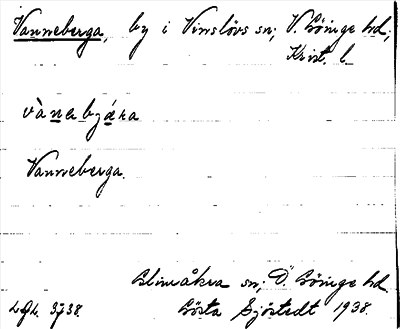 Vanneberga, by i Vinslövs sn; V. Göinge hd;
Krist. l.
vànabyára
Vanneberga.
Glimåkra sn; Ö. Göinge hd.
Gösta Sjöstedt 1938.